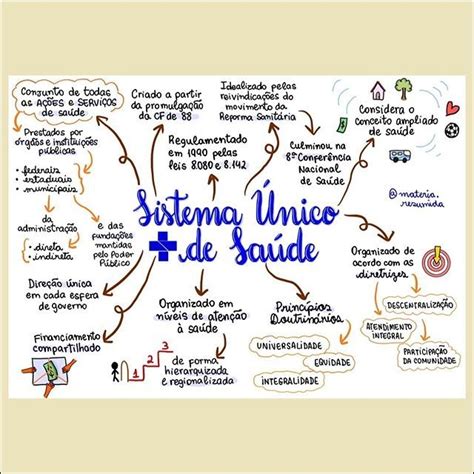 Conjunto de todas
as AÇÕES e SERVIÇOS
de saúde
Prestados por
órgãos e instituições
públicas
• federais
• estaduais
• municipais
da
administração
• direta
• indireta
e das
fundações
mantidas
pelo Poder
Público
Direção única
em cada espera
de governo
Financiamento
compartilhado
Criado a partir
da promulgação
da CF de '88
Regulamentado
em 1990 pelas
leis 8.080 e 8.142
Idealizado pelas
reivindicações do
movimento da
Reforma Sanitária
Culminou na
8ª Conferência
Nacional
de Saúde
Considera o
conceito ampliado
de saúde
@materia.
resumida
Sistema Único
de Saúde
Organizado em
níveis de atenção
à saúde
1 2 3
de forma
hierarquizada
e regionalizada
Princípios
Doutrinários
UNIVERSALIDADE
EQUIDADE
INTEGRALIDADE
Organizado de
acordo com as
diretrizes
DESCENTRALIZAÇÃO
ATENDIMENTO
INTEGRAL
PARTICIPAÇÃO
DA COMUNIDADE